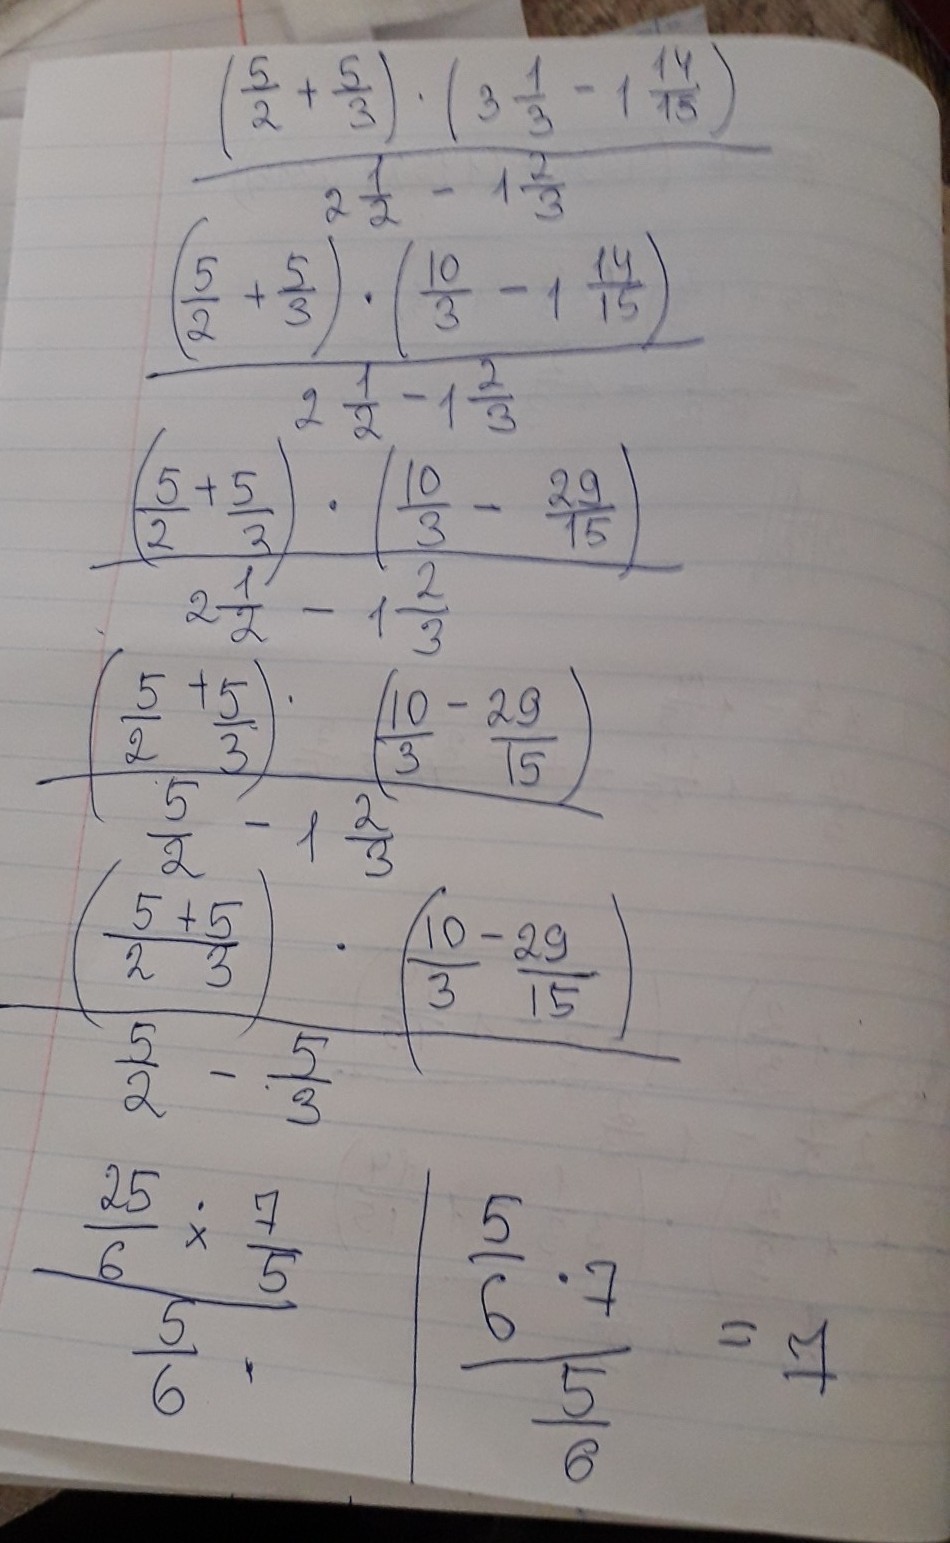 (5/2 + 5/3) · (3 1/3 - 1 14/15)
2 1/2 - 1 2/3
(5/2 + 5/3) · (10/3 - 1 14/15)
2 1/2 - 1 2/3
(5/2 + 5/3) · (10/3 - 29/15)
2 1/2 - 1 2/3
(5/2 + 5/3) · (10/3 - 29/15)
5/2 - 1 2/3
(5/2 + 5/3) · (10/3 - 29/15)
5/2 - 5/3
25/6 × 7/5
5/6 .
5/6 · 7
5/6
= 7